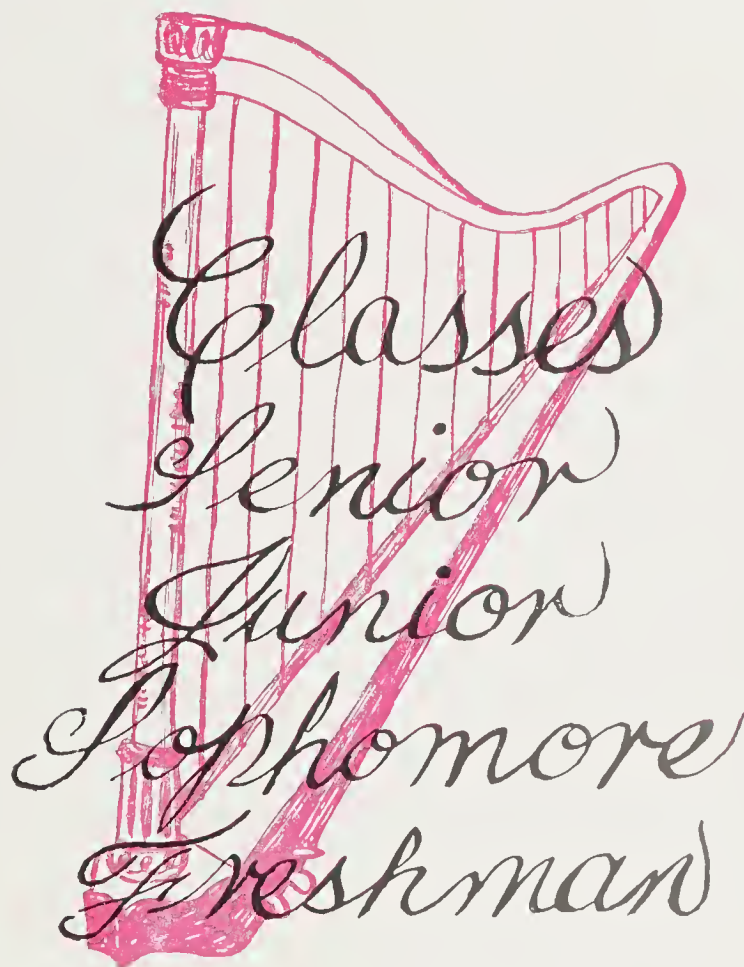 Classes
Senior
Junior
Sophomore
Freshman